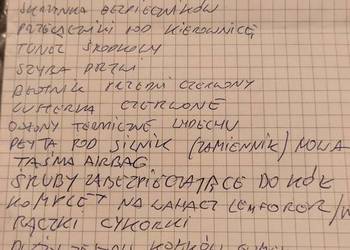 SKRZYNKA BEZPIECZNIKÓW
PRZEŁĄCZNIKI POD KIEROWNICĘ
TUNEL ŚRODKOWY
SZYBA DRZWI
BŁOTNIK PRZEDNI CZERWONY
LUSTERKA CZERWONE
OSŁONY TERMICZNE WYDECHU
PŁYTA POD SILNIK (ZAMIENNIK) NOWA
TAŚMA AIRBAG
ŚRUBY ZABEZPIECZAJĄCE DO KÓŁ
KOMPLET NA WAHACZ LEMFORDER/
RĄCZKI CYKORKI